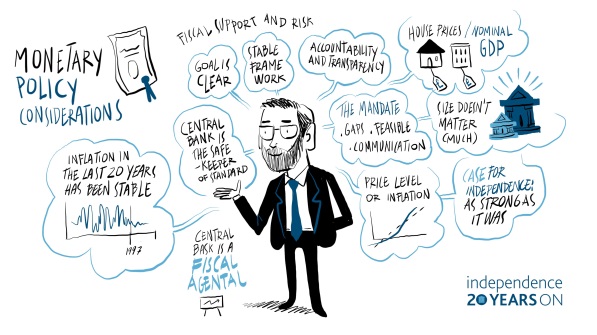 MONETARY
POLICY
CONSIDERATIONS
FISCAL SUPPORT AND RISK
GOAL IS
CLEAR
STABLE
FRAME
WORK
ACCOUNTABILITY
AND TRANSPARENCY
HOUSE PRICES / NOMINAL
GDP
CENTRAL
BANK IS
THE SAFE
-KEEPER
OF STANDARD
THE MANDATE
. GAPS . FEASIBLE
. COMMUNICATION
SIZE DOEIN'T
MATTER
(MUCH)
INFLATION IN
THE LAST 20 YEARS
HAS BEEN STABLE
1997
PRICE LEVEL
OR INFLATION
CASE FOR
INDEPENDENCE:
AS STRONG AS
IT WAS
CENTRAL
BASK IS A
FISCAL
AGENTAL
independence
20 YEARS ON